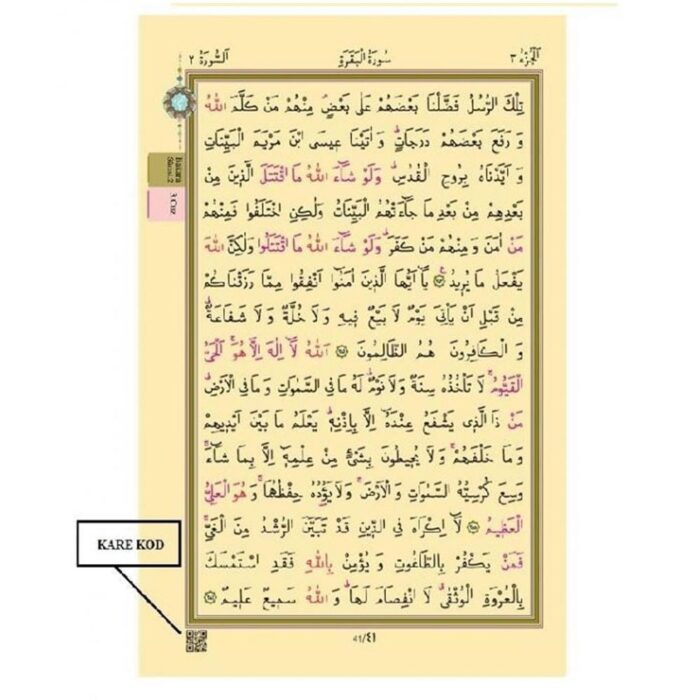 الجزء ٣
سورة البقرة
السورة ٢
تِلْكَ الرُّسُلُ فَضَّلْنَا بَعْضَهُمْ عَلٰى بَعْضٍۘ مِنْهُمْ مَنْ كَلَّمَ اللّٰهُ
وَ رَفَعَ بَعْضَهُمْ دَرَجَاتٍۜ وَ اٰتَيْنَا عٖيسَى ابْنَ مَرْيَمَ الْبَيِّنَاتِ
وَ اَيَّدْنَاهُ بِرُوحِ الْقُدُسِۜ وَلَوْ شَٓاءَ اللّٰهُ مَا اقْتَتَلَ الَّذٖينَ مِنْ
بَعْدِهِمْ مِنْ بَعْدِ مَا جَٓاءَتْهُمُ الْبَيِّنَاتُ وَلٰكِنِ اخْتَلَفُوا فَمِنْهُمْ
مَنْ اٰمَنَ وَ مِنْهُمْ مَنْ كَفَرَۜ وَلَوْ شَٓاءَ اللّٰهُ مَا اقْتَتَلُوا وَلٰكِنَّ اللّٰهَ
يَفْعَلُ مَا يُرٖيدُ ﴿٢٥٣﴾ يَٓا اَيُّهَا الَّذٖينَ اٰمَنُٓوا اَنْفِقُوا مِمَّا رَزَقْنَاكُمْ
مِنْ قَبْلِ اَنْ يَأْتِيَ يَوْمٌ لَا بَيْعٌ فٖيهِ وَ لَا خُلَّةٌ وَ لَا شَفَاعَةٌۜ
وَ الْكَافِرُونَ هُمُ الظَّالِمُونَ ﴿٢٥٤﴾ اَللّٰهُ لَٓا اِلٰهَ اِلَّا هُوَۚ اَلْحَيُّ
الْقَيُّومُۚ لَا تَأْخُذُهُ سِنَةٌ وَ لَا نَوْمٌۜ لَهُ مَا فِي السَّمٰوَاتِ وَ مَا فِي الْاَرْضِۜ
مَنْ ذَا الَّذٖي يَشْفَعُ عِنْدَهُٓ اِلَّا بِاِذْنِهٖۜ يَعْلَمُ مَا بَيْنَ اَيْدٖيهِمْ
وَ مَا خَلْفَهُمْۚ وَ لَا يُحٖيطُونَ بِشَيْءٍ مِنْ عِلْمِهٖٓ اِلَّا بِمَا شَٓاءَۚ
وَسِعَ كُرْسِيُّهُ السَّمٰوَاتِ وَ الْاَرْضَۚ وَ لَا يَؤُدُهُ حِفْظُهُمَاۚ وَ هُوَ الْعَلِيُّ
الْعَظٖيمُ ﴿٢٥٥﴾ لَٓا اِكْرَاهَ فِي الدّٖينِ قَدْ تَبَيَّنَ الرُّشْدُ مِنَ الْغَيِّۚ
فَمَنْ يَكْفُرْ بِالطَّاغُوتِ وَ يُؤْمِنْ بِاللّٰهِ فَقَدِ اسْتَمْسَكَ
بِالْعُرْوَةِ الْوُثْقٰىۗ لَا انْفِصَامَ لَهَاۜ وَ اللّٰهُ سَمٖيعٌ عَلٖيمٌ ﴿٢٥٦﴾
Bakara
Sûresi 2
3.Cüz
KARE KOD
41/٤١